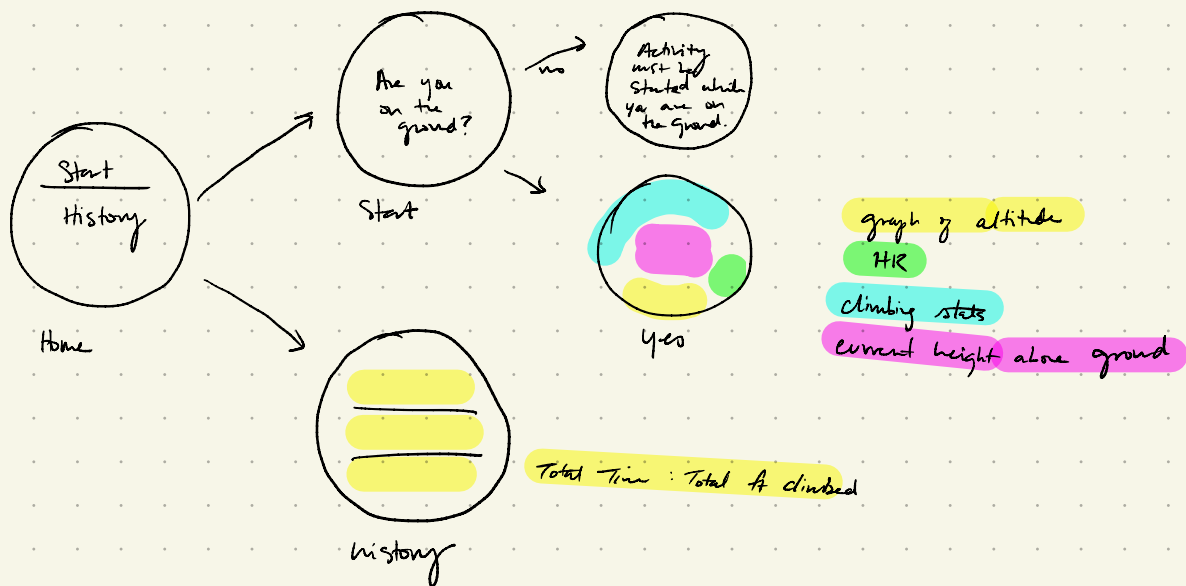 Start
History
Home
Are you
on the
ground?
Start
no
Activity
must be
started while
you are on
the Ground.
yes
graph of altitude
HR
climbing stats
current height above ground
history
Total Time : Total ft climbed